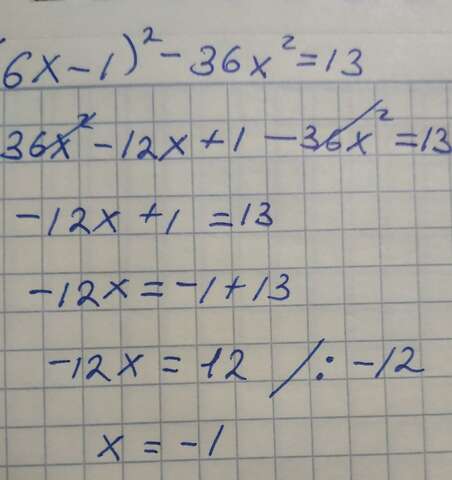 (6x-1)²-36x²=13
36x²-12x+1-36x²=13
-12x+1=13
-12x=-1+13
-12x=12 /: -12
x=-1